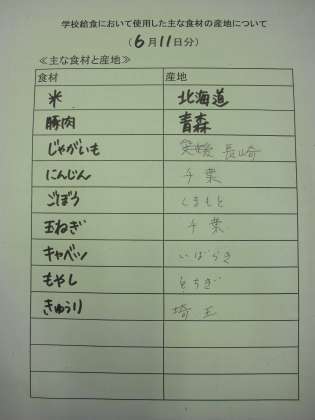 学校給食において使用した主な食材の産地について
(6月11日分)
≪主な食材と産地≫
食材 産地
米 北海道
豚肉 青森
じゃがいも 愛媛 長崎
にんじん 千葉
ごぼう くまもと
玉ねぎ 千葉
キャベツ いばらき
もやし とちぎ
きゅうり 埼玉